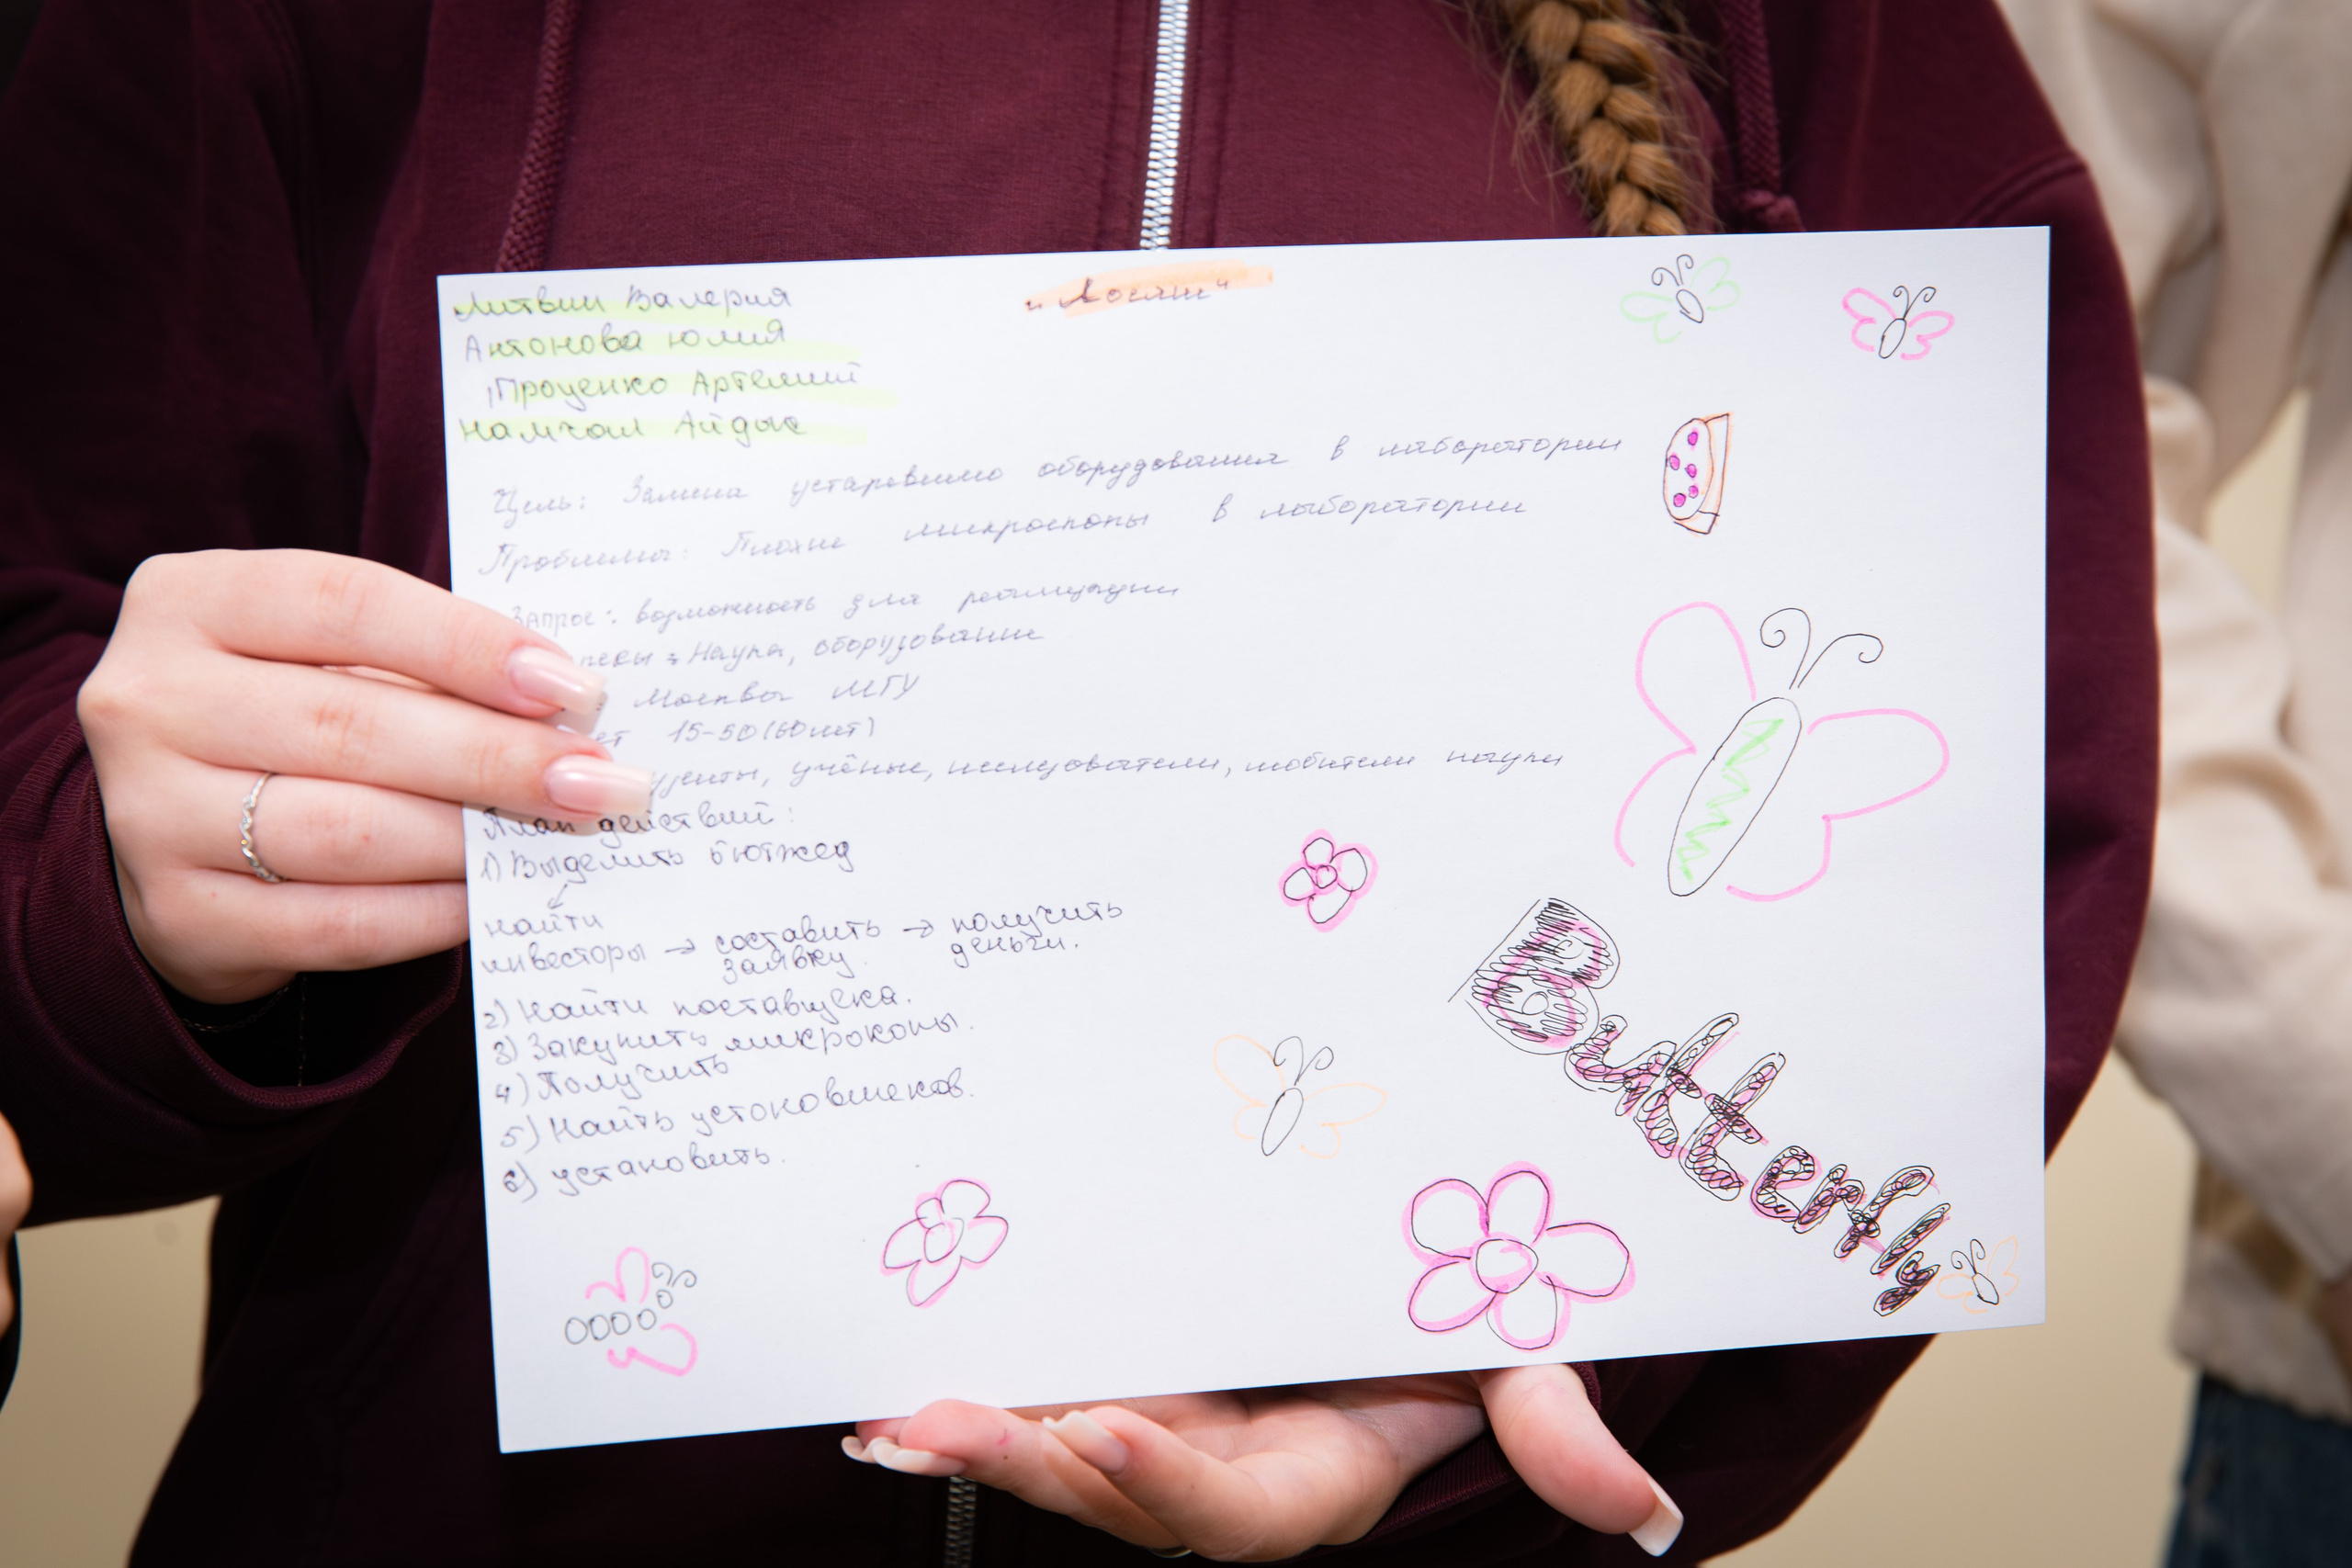 Литвин Валерия
Антонова Юлия
Проценко Артемий
Намчал Айдыс
"Лосяш"
Цель: Замена устаревшего оборудования в лаборатории
Проблемы: Плохие микроскопы в лаборатории
Запрос: возможность для реализации
Наука, оборудование
Москвы МГУ
15-50(60лет)
учёные, исследователи, любители науки
План действий:
1) Выделить бютжед
найти
инвесторы → составить → получить
заявку. деньги.
2) Найти поставщека.
3) Закупить микроконы.
4) Получить
5) Найть устоновшеков.
6) установить.
Butterfly